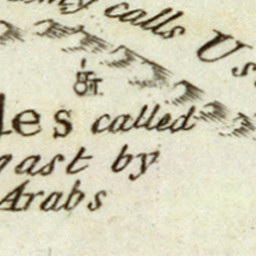 calls Us
les called
gast by
Arabs